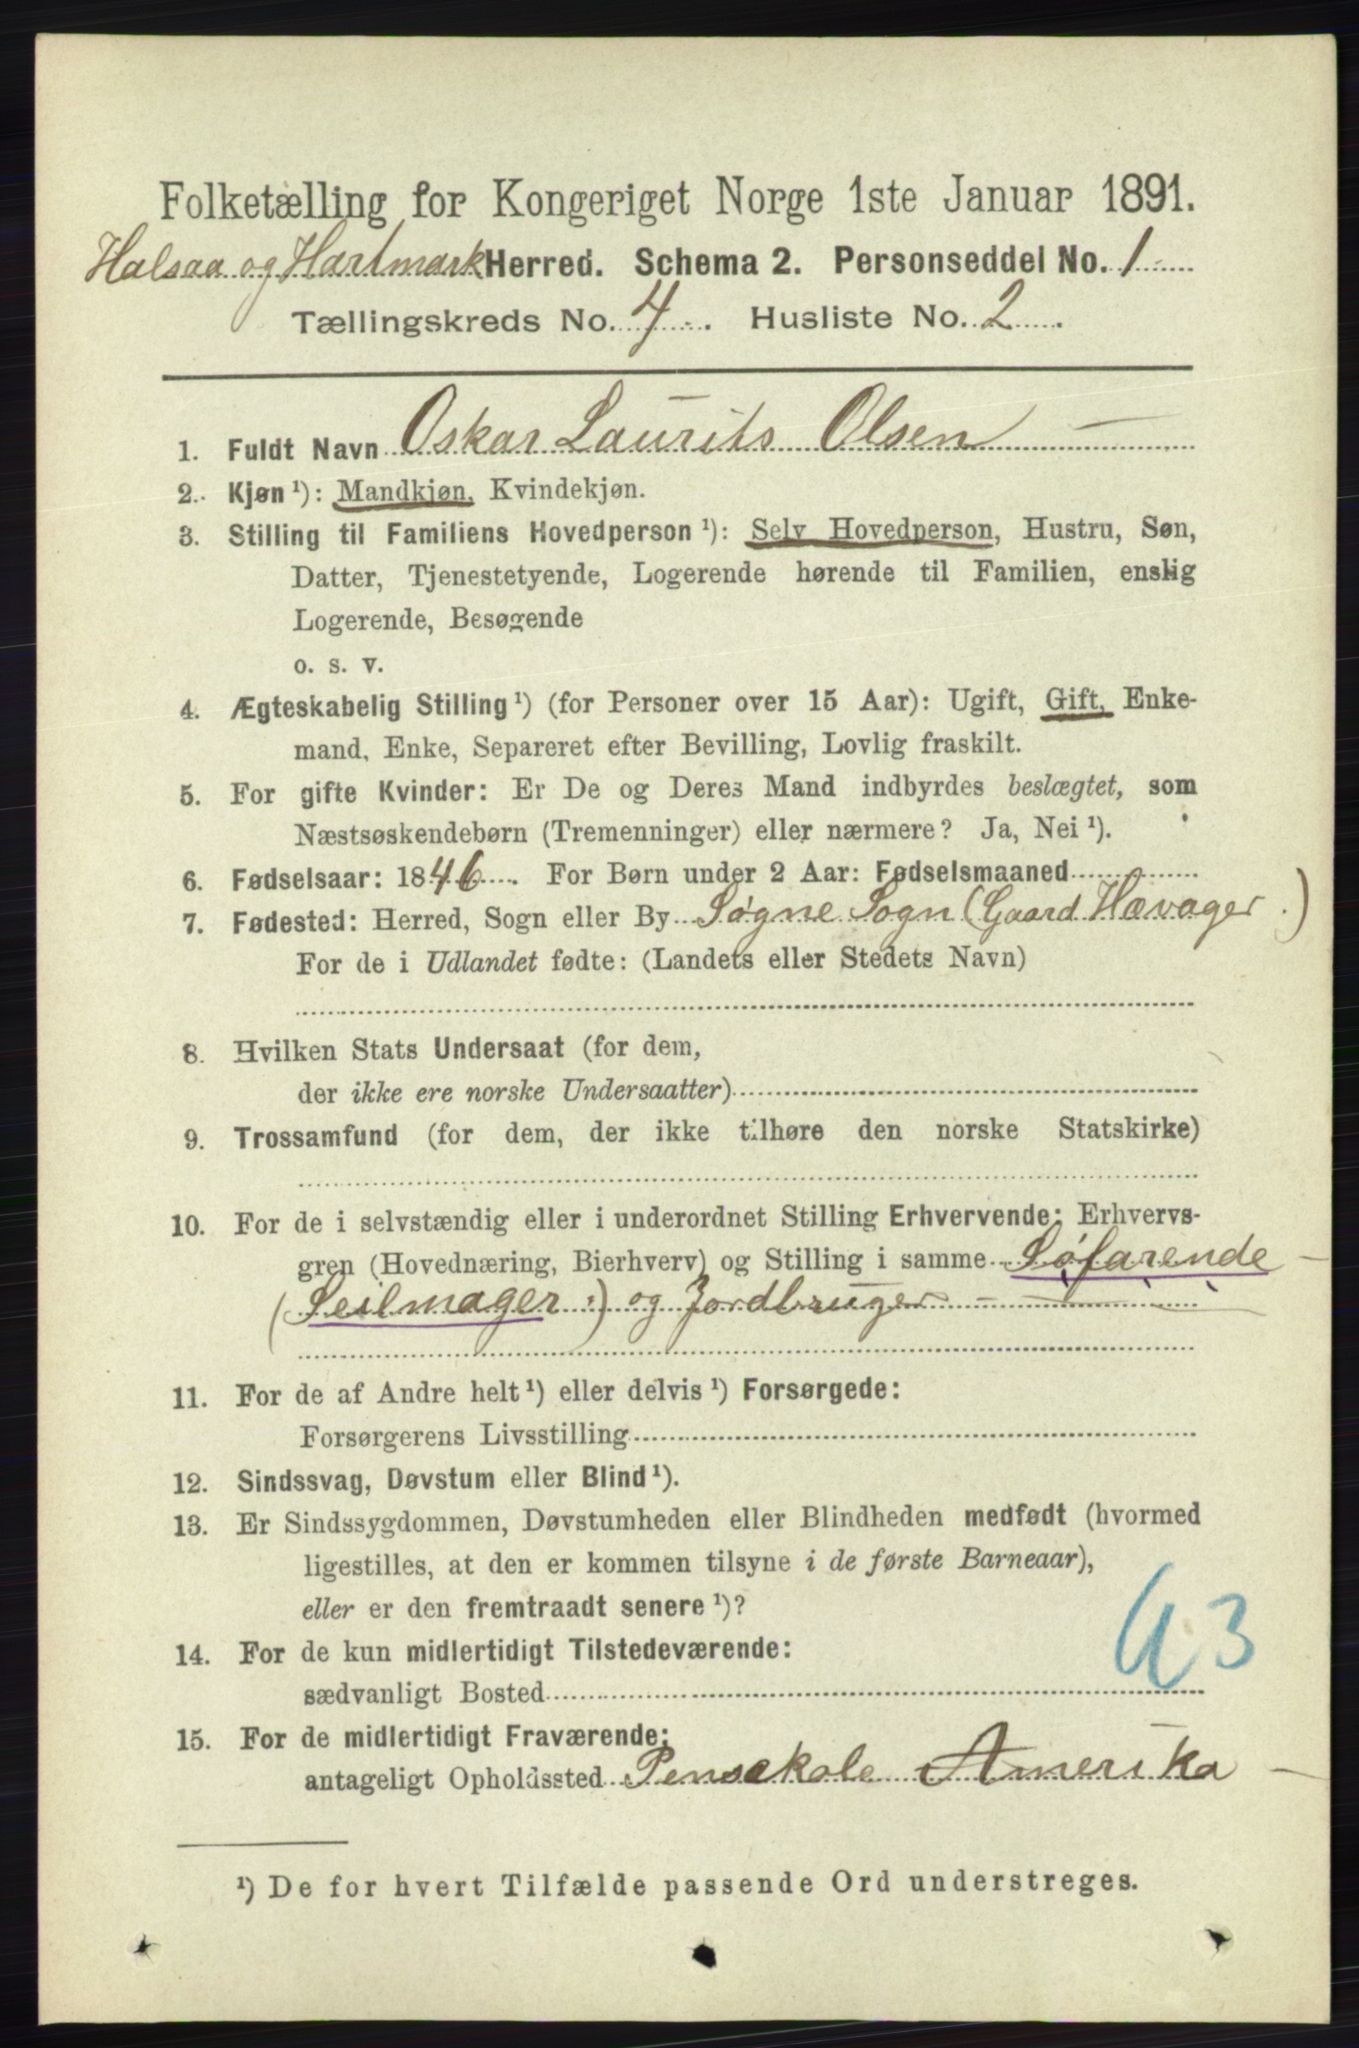 Folketælling for Kongeriget Norge 1ste Januar 1891.
Halsaa og Hartmark Herred. Schema 2. Personseddel No. 1
Tællingskreds No. 4. Husliste No. 2.
1. Fuldt Navn Oskar Laurits Olsen
2. Kjøn ¹): Mandkjøn, Kvindekjøn.
3. Stilling til Familiens Hovedperson ¹): Selv Hovedperson, Hustru, Søn,
Datter, Tjenestetyende, Logerende hørende til Familien, enslig
Logerende, Besøgende
o. s. v.
4. Ægteskabelig Stilling ¹) (for Personer over 15 Aar): Ugift, Gift, Enke-
mand, Enke, Separeret efter Bevilling, Lovlig fraskilt.
5. For gifte Kvinder: Er De og Deres Mand indbyrdes beslægtet, som
Næstsøskendebørn (Tremenninger) eller nærmere? Ja, Nei ¹).
6. Fødselsaar: 1846. For Børn under 2 Aar: Fødselsmaaned
7. Fødested: Herred, Sogn eller By Søgne Sogn (Gaard Hævager.)
For de i Udlandet fødte: (Landets eller Stedets Navn)
8. Hvilken Stats Undersaat (for dem,
der ikke ere norske Undersaatter)
9. Trossamfund (for dem, der ikke tilhøre den norske Statskirke)
10. For de i selvstændig eller i underordnet Stilling Erhvervende: Erhvervs-
gren (Hovednæring, Bierhverv) og Stilling i samme Søfarende
(Seilmager:) og Jordbruger
11. For de af Andre helt ¹) eller delvis ¹) Forsørgede:
Forsørgerens Livsstilling
12. Sindssvag, Døvstum eller Blind ¹).
13. Er Sindssygdommen, Døvstumheden eller Blindheden medfødt (hvormed
ligestilles, at den er kommen tilsyne i de første Barneaar),
eller er den fremtraadt senere ¹)?
14. For de kun midlertidigt Tilstedeværende:
sædvanligt Bosted
15. For de midlertidigt Fraværende:
antageligt Opholdssted Pensekole Amerika
¹) De for hvert Tilfælde passende Ord understreges.